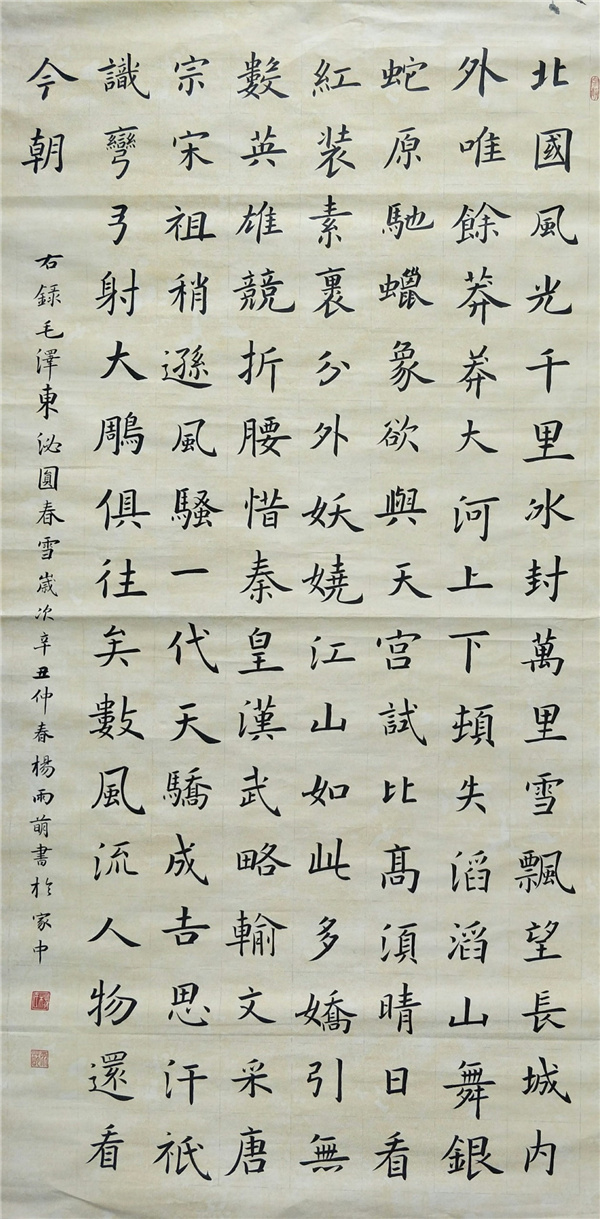 北國風光千里冰封萬里雪飄望長城内
外唯餘莽莽大河上下頓失滔滔山舞銀
蛇原馳蠟象欲與天宫試比髙須晴日看
紅装素裹分外妖嬈江山如此多嬌引無
數英雄競折腰惜秦皇漢武略輸文采唐
宗宋祖稍遜風騷一代天驕成吉思汗祇
識彎弓射大鵰俱往矣數風流人物還看
今朝
右録毛澤東泌圓春雪歲次辛丑仲春楊雨萌書於家中